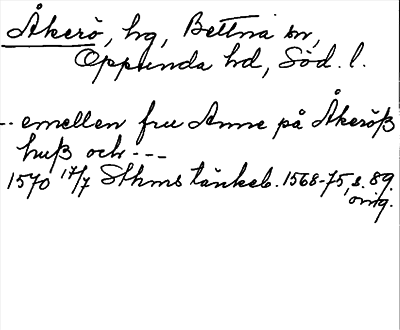 Åkerö, hg, Bettna sn,
Oppunda hd, Söd. l.
-- emellen fru Anne på Åkeröß
huß och ---
1570 17/7 Sthms tänkeb. 1568-75, s. 89.
orig.